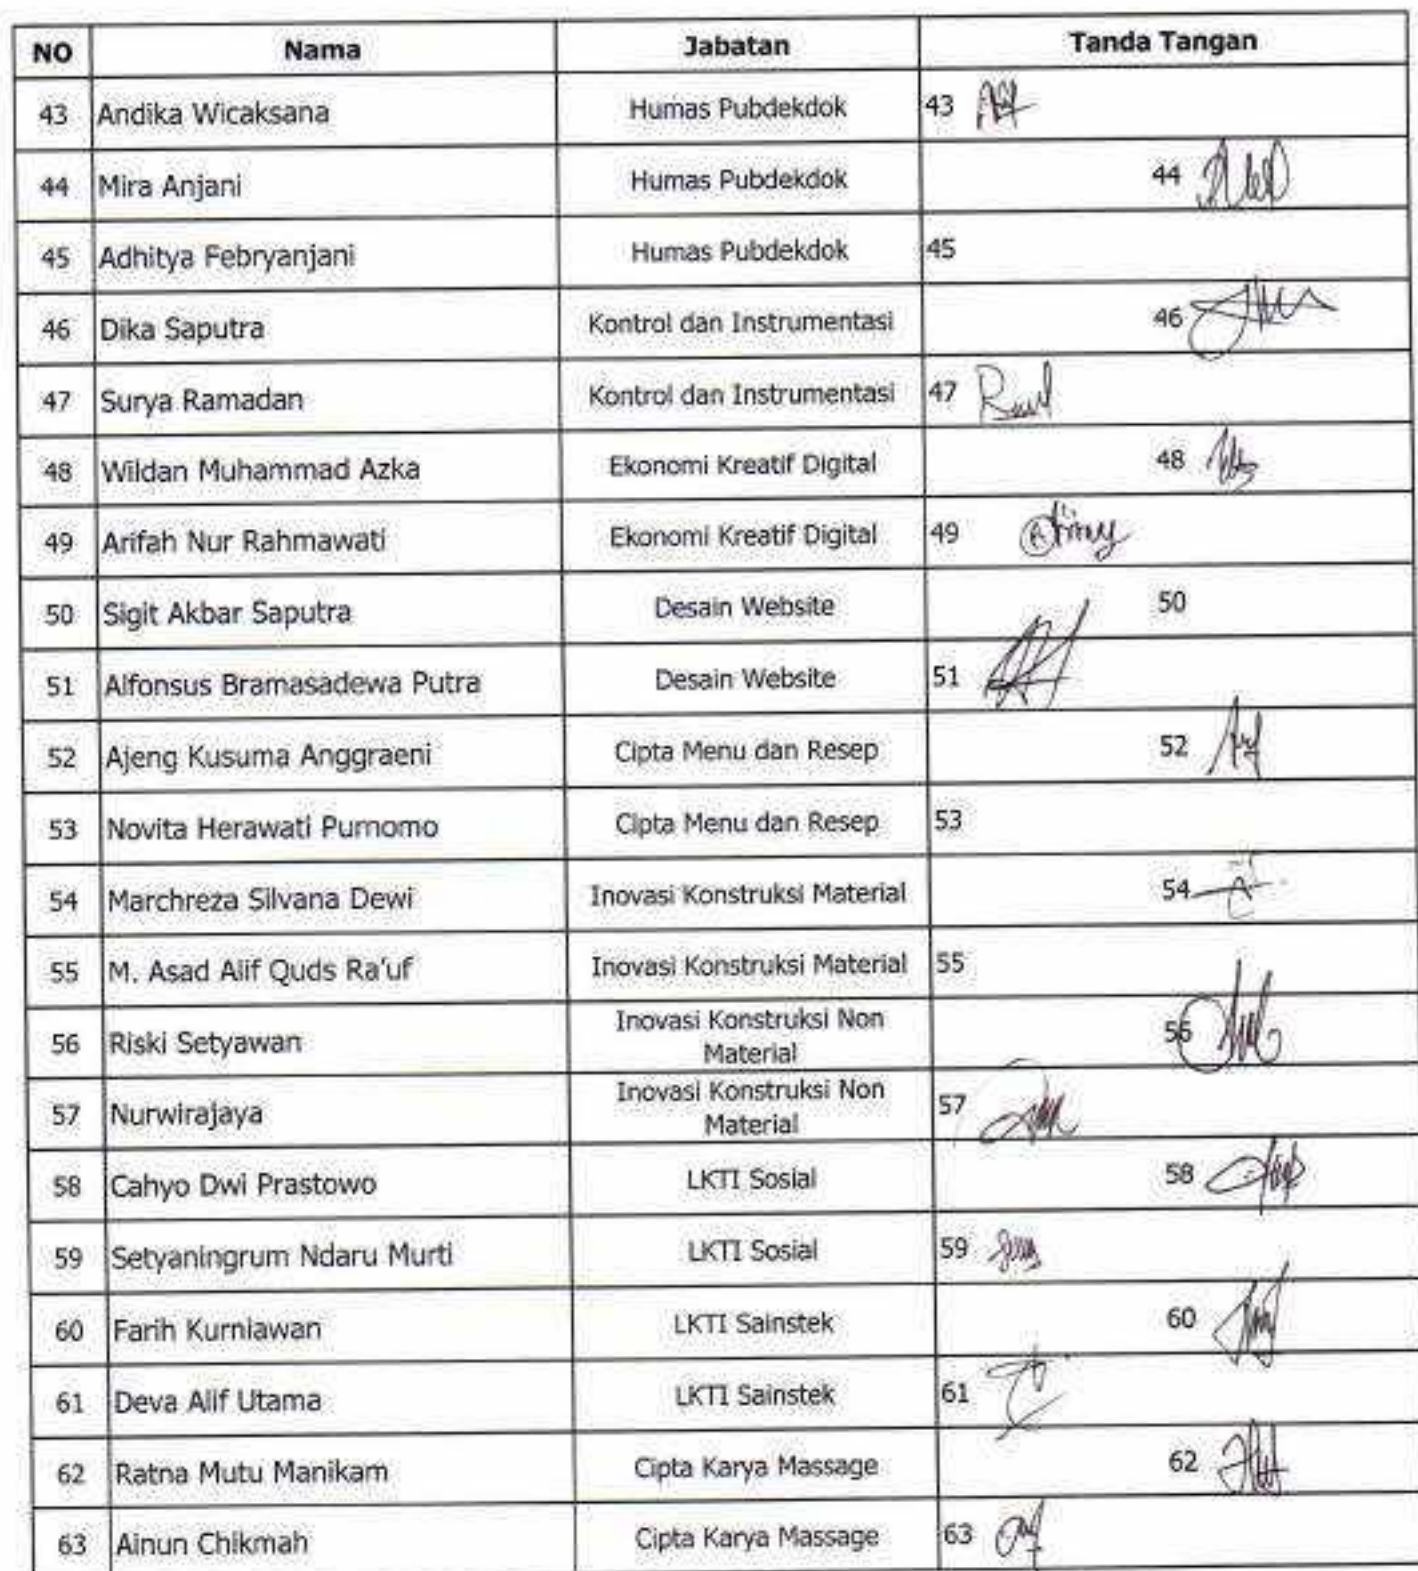 NO Nama Jabatan Tanda Tangan
43 Andika Wicaksana Humas Pubdekdok 43
44 Mira Anjani Humas Pubdekdok 44
45 Adhitya Febryanjani Humas Pubdekdok 45
46 Dika Saputra Kontrol dan Instrumentasi 46
47 Surya Ramadan Kontrol dan Instrumentasi 47
48 Wildan Muhammad Azka Ekonomi Kreatif Digital 48
49 Arifah Nur Rahmawati Ekonomi Kreatif Digital 49
50 Sigit Akbar Saputra Desain Website 50
51 Alfonsus Bramasadewa Putra Desain Website 51
52 Ajeng Kusuma Anggraeni Cipta Menu dan Resep 52
53 Novita Herawati Purnomo Cipta Menu dan Resep 53
54 Marchreza Silvana Dewi Inovasi Konstruksi Material 54
55 M. Asad Alif Quds Ra'uf Inovasi Konstruksi Material 55
56 Riski Setyawan Inovasi Konstruksi Non
Material 56
57 Nurwirajaya Inovasi Konstruksi Non
Material 57
58 Cahyo Dwi Prastowo LKTI Sosial 58
59 Setyaningrum Ndaru Murti LKTI Sosial 59
60 Farih Kurniawan LKTI Sainstek 60
61 Deva Alif Utama LKTI Sainstek 61
62 Ratna Mutu Manikam Cipta Karya Massage 62
63 Ainun Chikmah Cipta Karya Massage 63